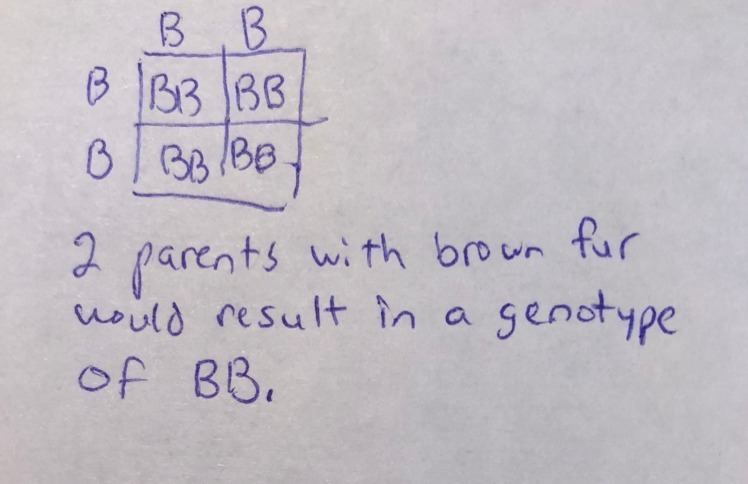 B B
B BB BB
B BB BB
2 parents with brown fur
would result in a genotype
of BB.